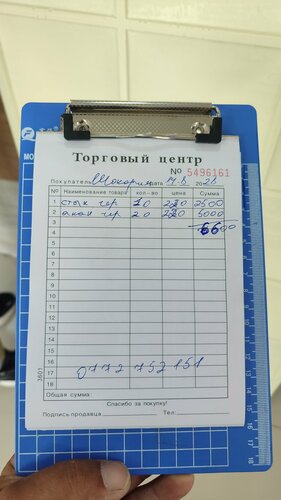 Торговый центр
№ 5496161
Покупатель Шокорих дата 14.8 20
№ Наименование товара кол-во цена Сумма
1 стык чер 10 220 2500
2 чер 20 220 5000
3
4
5
6
7
8
9
10
11
12
13
14
15
16
17 0772 752 151
18
Общая сумма:
Спасибо за покупку!
Подпись продавца Тел:
3601